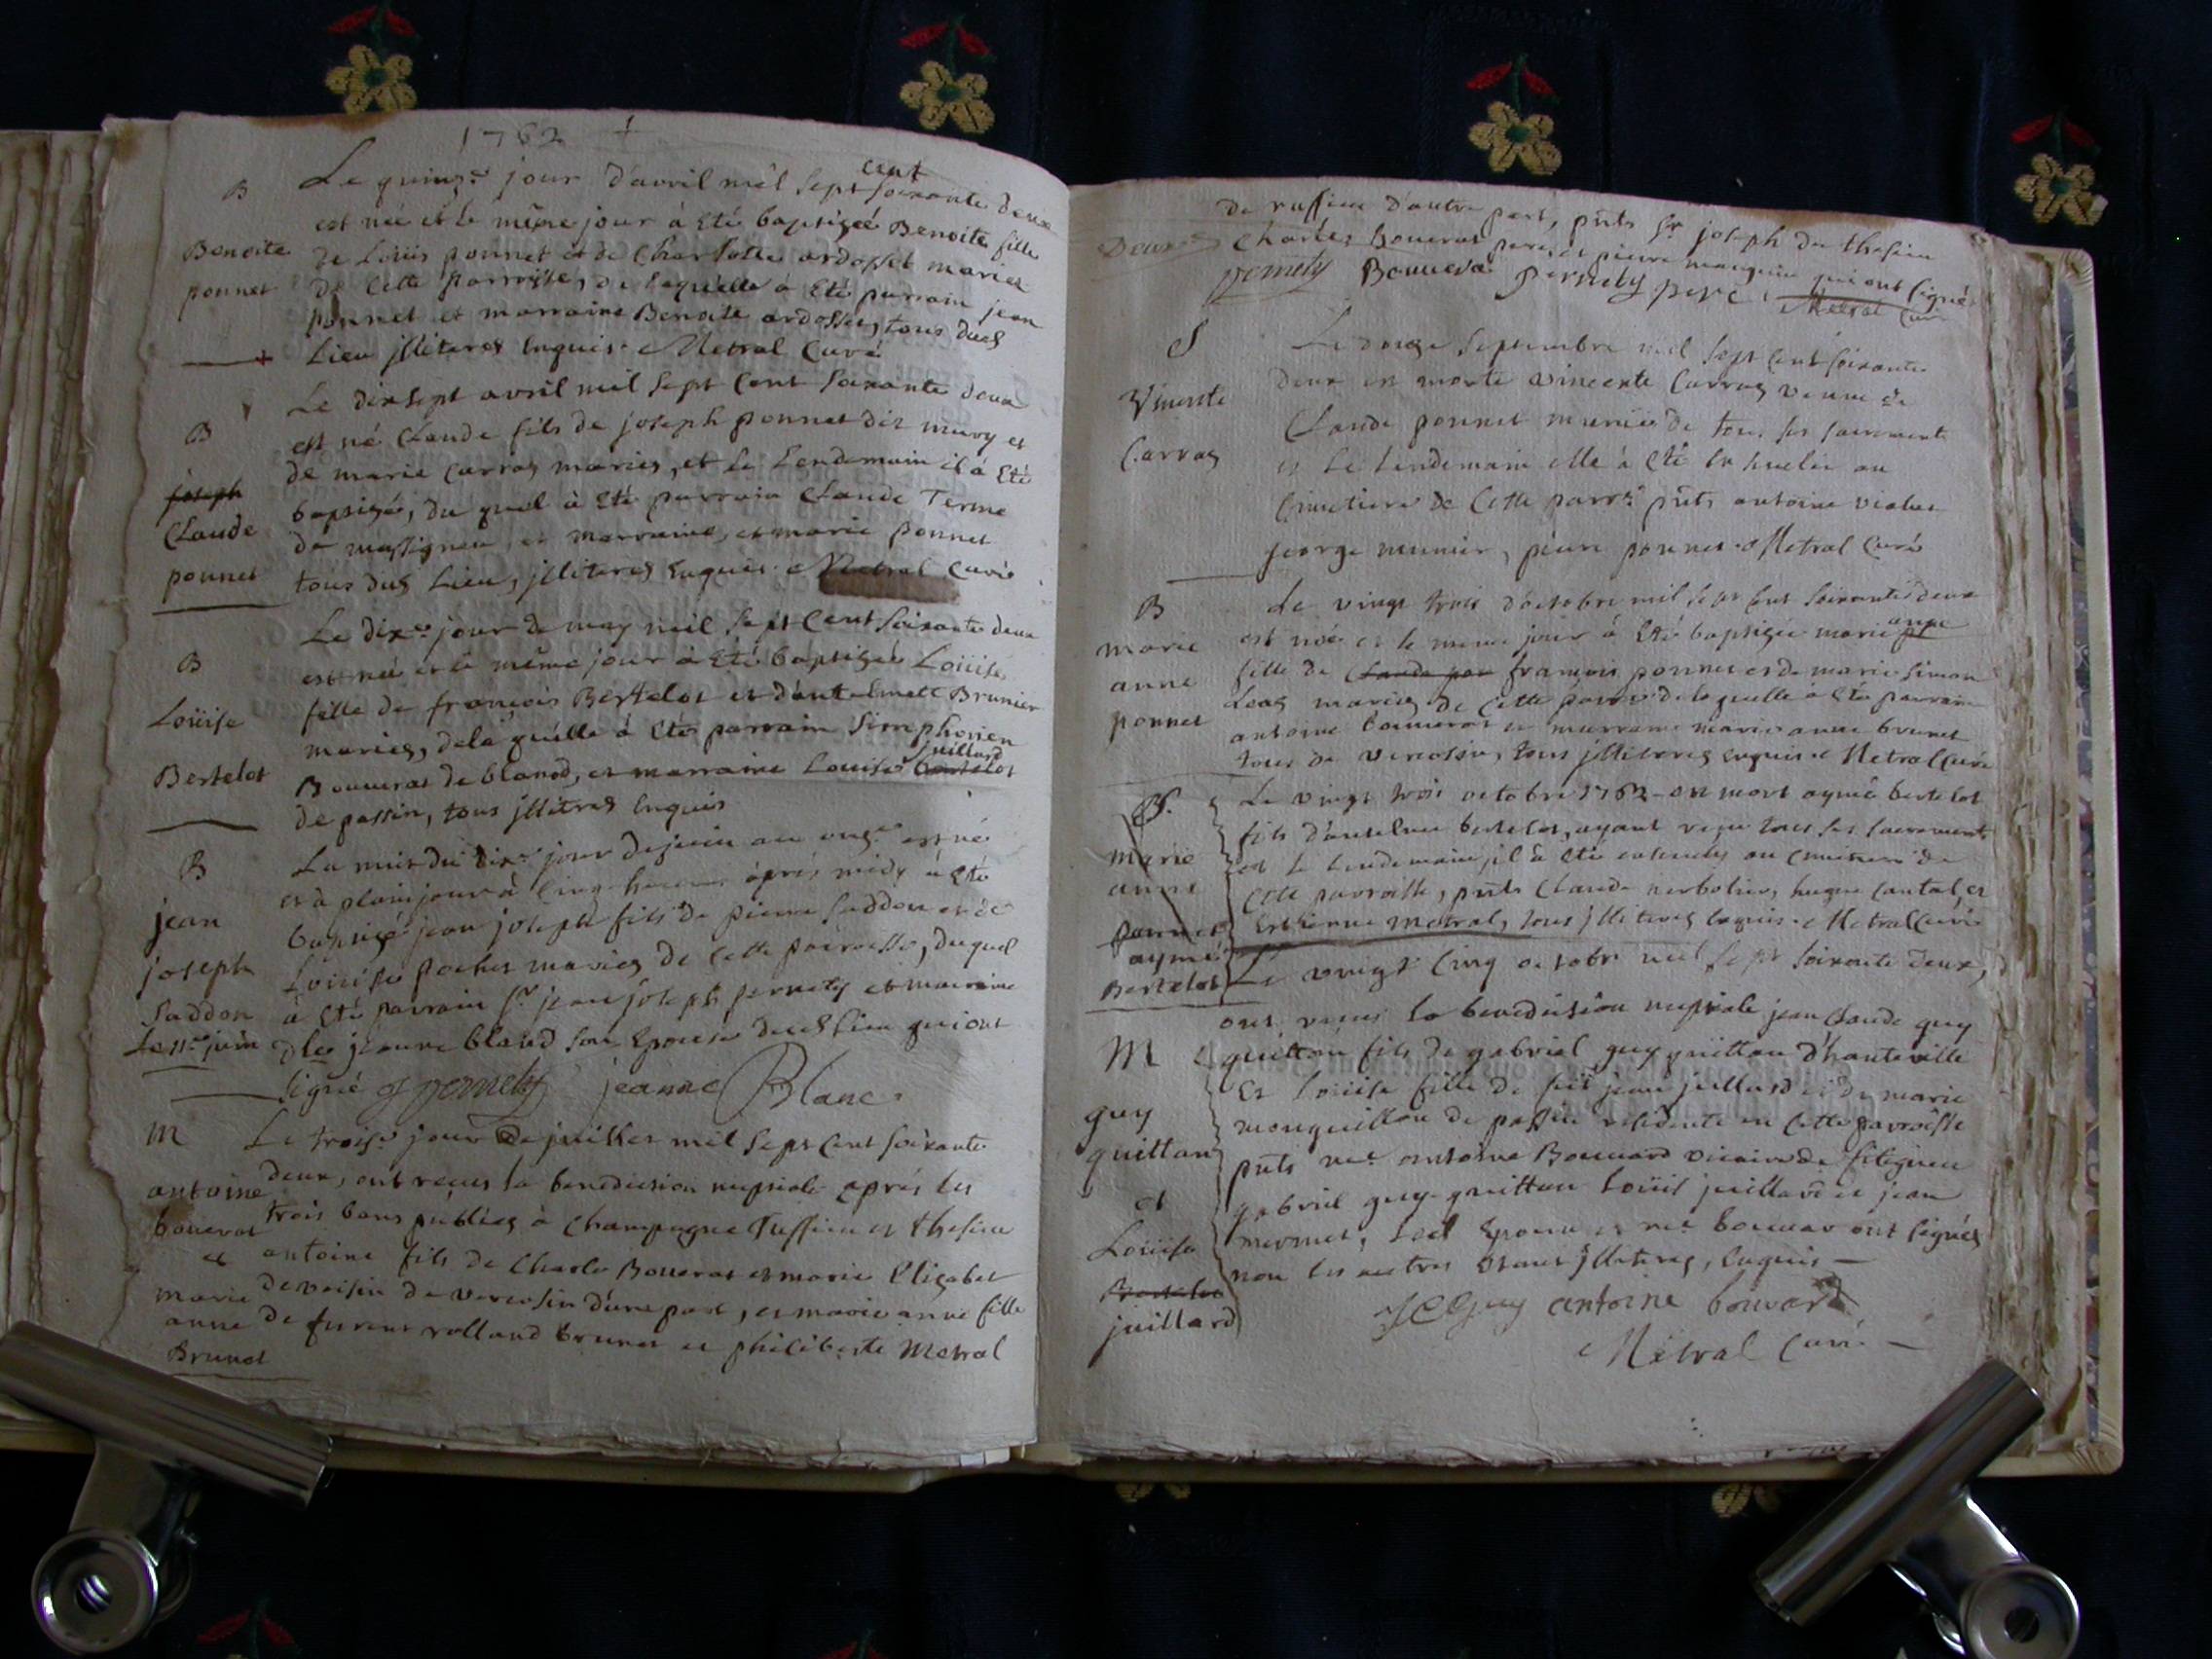 1762
B Le quinze jour d'avril mil sept cent soixante deux
est née et le même jour à Eté baptizée Benoite fille
Benoite de Loüis ponnet et de Charlotte ardosset mariez
ponnet de Cette Parroisse, de laquelle à Eté parrain jean
ponnet et marraine Benoite ardosset, tous dud
Lieu jlliteres Enquis. Metral Curé
Le dixsept avril mil sept Cent soixante deux
B est né Claude fils de joseph ponnet dit
de marie Carraz mariez, et le Lendemain il à Eté
joseph baptizé, du quel à Eté parrain Claude Terme
Claude de massignieu, et marraine, et marie ponnet
ponnet tous dud Lieu, jlliteres Enquis. Metral Curé
Le dixe jour de may mil sept Cent soixante deux
B est née et le même jour à Eté baptizée Loüise
Loüise fille de françois Bertelot et d'antelmette Brunier
mariez, de la quelle à Eté parrain Simphorien
juillard
Bertelot Bouverat de blanod, et marraine Louise bertelot
de passin, tous jlliteres Enquis
B La nuit du dixe jour de juin au onze est né
jean et à plain jour à Cinq heures après midy à Eté
baptizé jean joseph fils de pierre saddon et de
joseph Loüise pochet mariez de Cette parroisse, du quel
saddon à Eté parrain sr jean joseph pernety et marraine
Le 11e juin dle jeanne bland son Epouse dud Lieu qui ont
signé pernety jeanne Blanc
M Le troise jour de juillet mil sept Cent soixante
antoine deux, ont reçus la benediction nuptiale après les
bouerat trois bans publiez à Champagne Ruffieu et thesieu
et antoine fils de Charle Bouerat et marie Elizabet
marie devoisin de vercosin d'une part, et marie anne fille
anne de rolland brunet et philiberte Metral
Brunet
de ruffieu d'autre part, pnts sr joseph de thesieu
Charles Bouerat pere, et pierre mauguin qui ont signés
pernety Bouuera pernety pere Metral Curé
S Le douze septembre mil sept Cent soixante
Vincente deux est morte vincente Carraz veuve de
Claude ponnet munie de tous ses sacrements
Carraz et Le Lendemain elle à Eté En svelie au
Cimetiere de Cette parre pnts antoine
george munier, pierre ponnet. Metral Curé
B Le vingt trois d'octobre mil sept Cent soixante deux
marie est née et le meme jour à Eté baptizée marie anne
anne fille de françois ponnet et de marie simon
ponnet mariez de Cette parre de la quelle à Eté parrain
antoine bouuerat et marraine marie anne brunet
tous de vercosin, tous jlliteres Enquis. Metral Curé
S. Le vingt trois octobre 1762 est mort aymé bertelot
fils d'antelme bertelot, ayant reçu tous ses sacrements
marie et le Lendemain, il à Eté au Cimitiere de
anne Cette parroisse, pnts Claude nerbolier, hugue Cantal, et
ponnet Estienne metral, tous jlliteres Enquis. Metral Curé
aymé
Bertelot Le vingt Cinq octobre mil sept soixante deux,
ont reçus la benediction nuptiale jean Claude guy
M quittan fils de gabriel guy quittan d'hauteville
Et Loüise fille de feü jean juillard et de marie
guy monguillan de passin residente en Cette parroisse
quittan pnts mre antoine Bouuard vicaire de
et gabriel guy-quittan Loüis juillard et jean
Loüise mermet, Led Epoux et mre bouuar ont signés
Bertelot non les autres Etant jlliteres, Enquis
juillard JCGuy antoine bouvard
Metral Curé